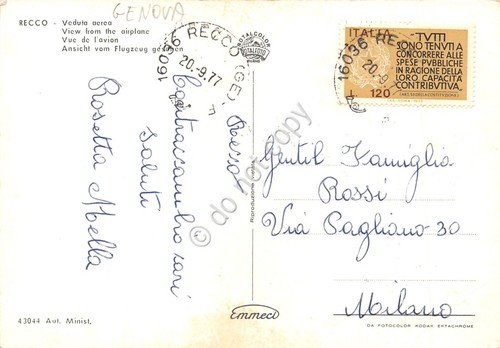 GENOVA
RECCO - Veduta aerea
View from the airplane
Vue de l'avion
Ansicht vom Flugzeug gesehen
16036 RECCO (GE)
20.-9.77
ROTALCOLOR
ITALIA
TUTTI
SONO TENUTI A
CONCORRERE ALLE
SPESE PUBBLICHE
IN RAGIONE DELLA
LORO CAPACITÀ
CONTRIBUTIVA.
L. 120
16036 RE
20.-9
Recco,
Contraccambio cari
saluti
Rosetta Mella
Gentil Famiglia
Rossi
Via Pagliano-30
Milano
© do not copy
43044 Aut. Minist.
Emmeci
DA FOTOCOLOR KODAK EKTACHROME